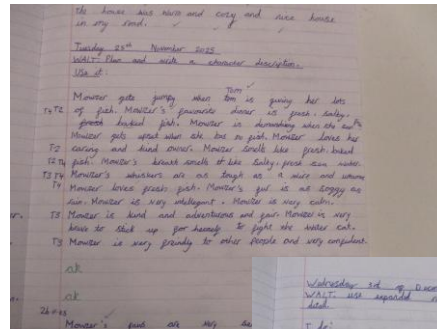 the house was warm and cozy and nice house
in my road.
Tuesday 25th November 2025
WALT: Plan and write a character description.
Use it:
Tom
Mowser gets jumpy when tom is giving her lots
T4 T2 of fish. Mowser's favourite dinner is fresh. Salty.
baked fish. Mowser is when she
Mowser gets upset when she has no fish. Mowser loves her
T2 caring and kind owner. Mowser smells like fresh baked
T2 T4 fish. Mowser's breath smells like Salty. fresh sea water.
T3 T4 Mowser's whiskers are as tough as a wire and
T4 Mowser loves fresh fish. Mowser's fur is as soggy as
rain. Mowser is very intelligent. Mowser is very calm.
T3 Mowser is kind and adventurous and fair. Mowser is very
brave to stick up for herself to fight the water cat.
T3 Mowser is very friendly to other people and very
ok
ok
Mowser's paws are very
Wednesday 3rd of
WALT: use expanded
I do: